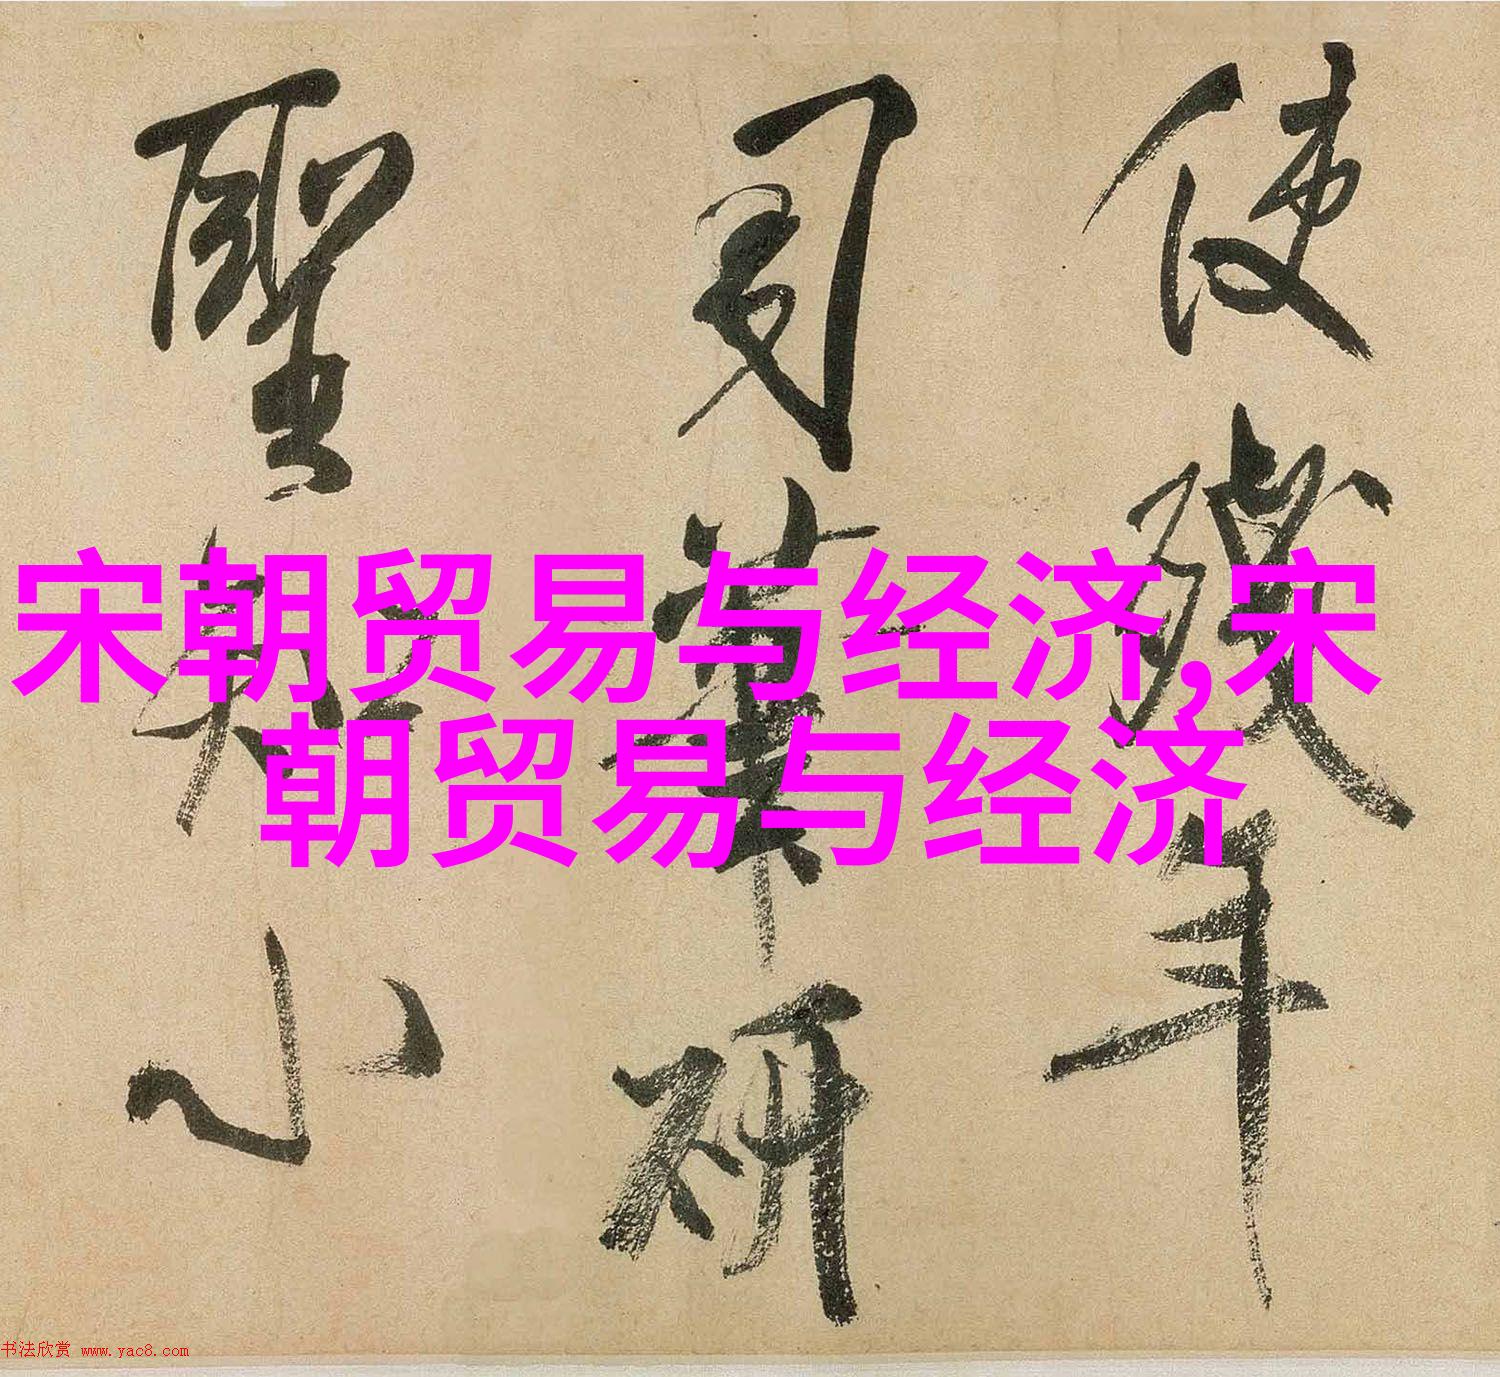 使殘年
司筆研
聖知小
宋朝贸易与经济,宋
朝贸易与经济
书法欣赏 www.yac8.com